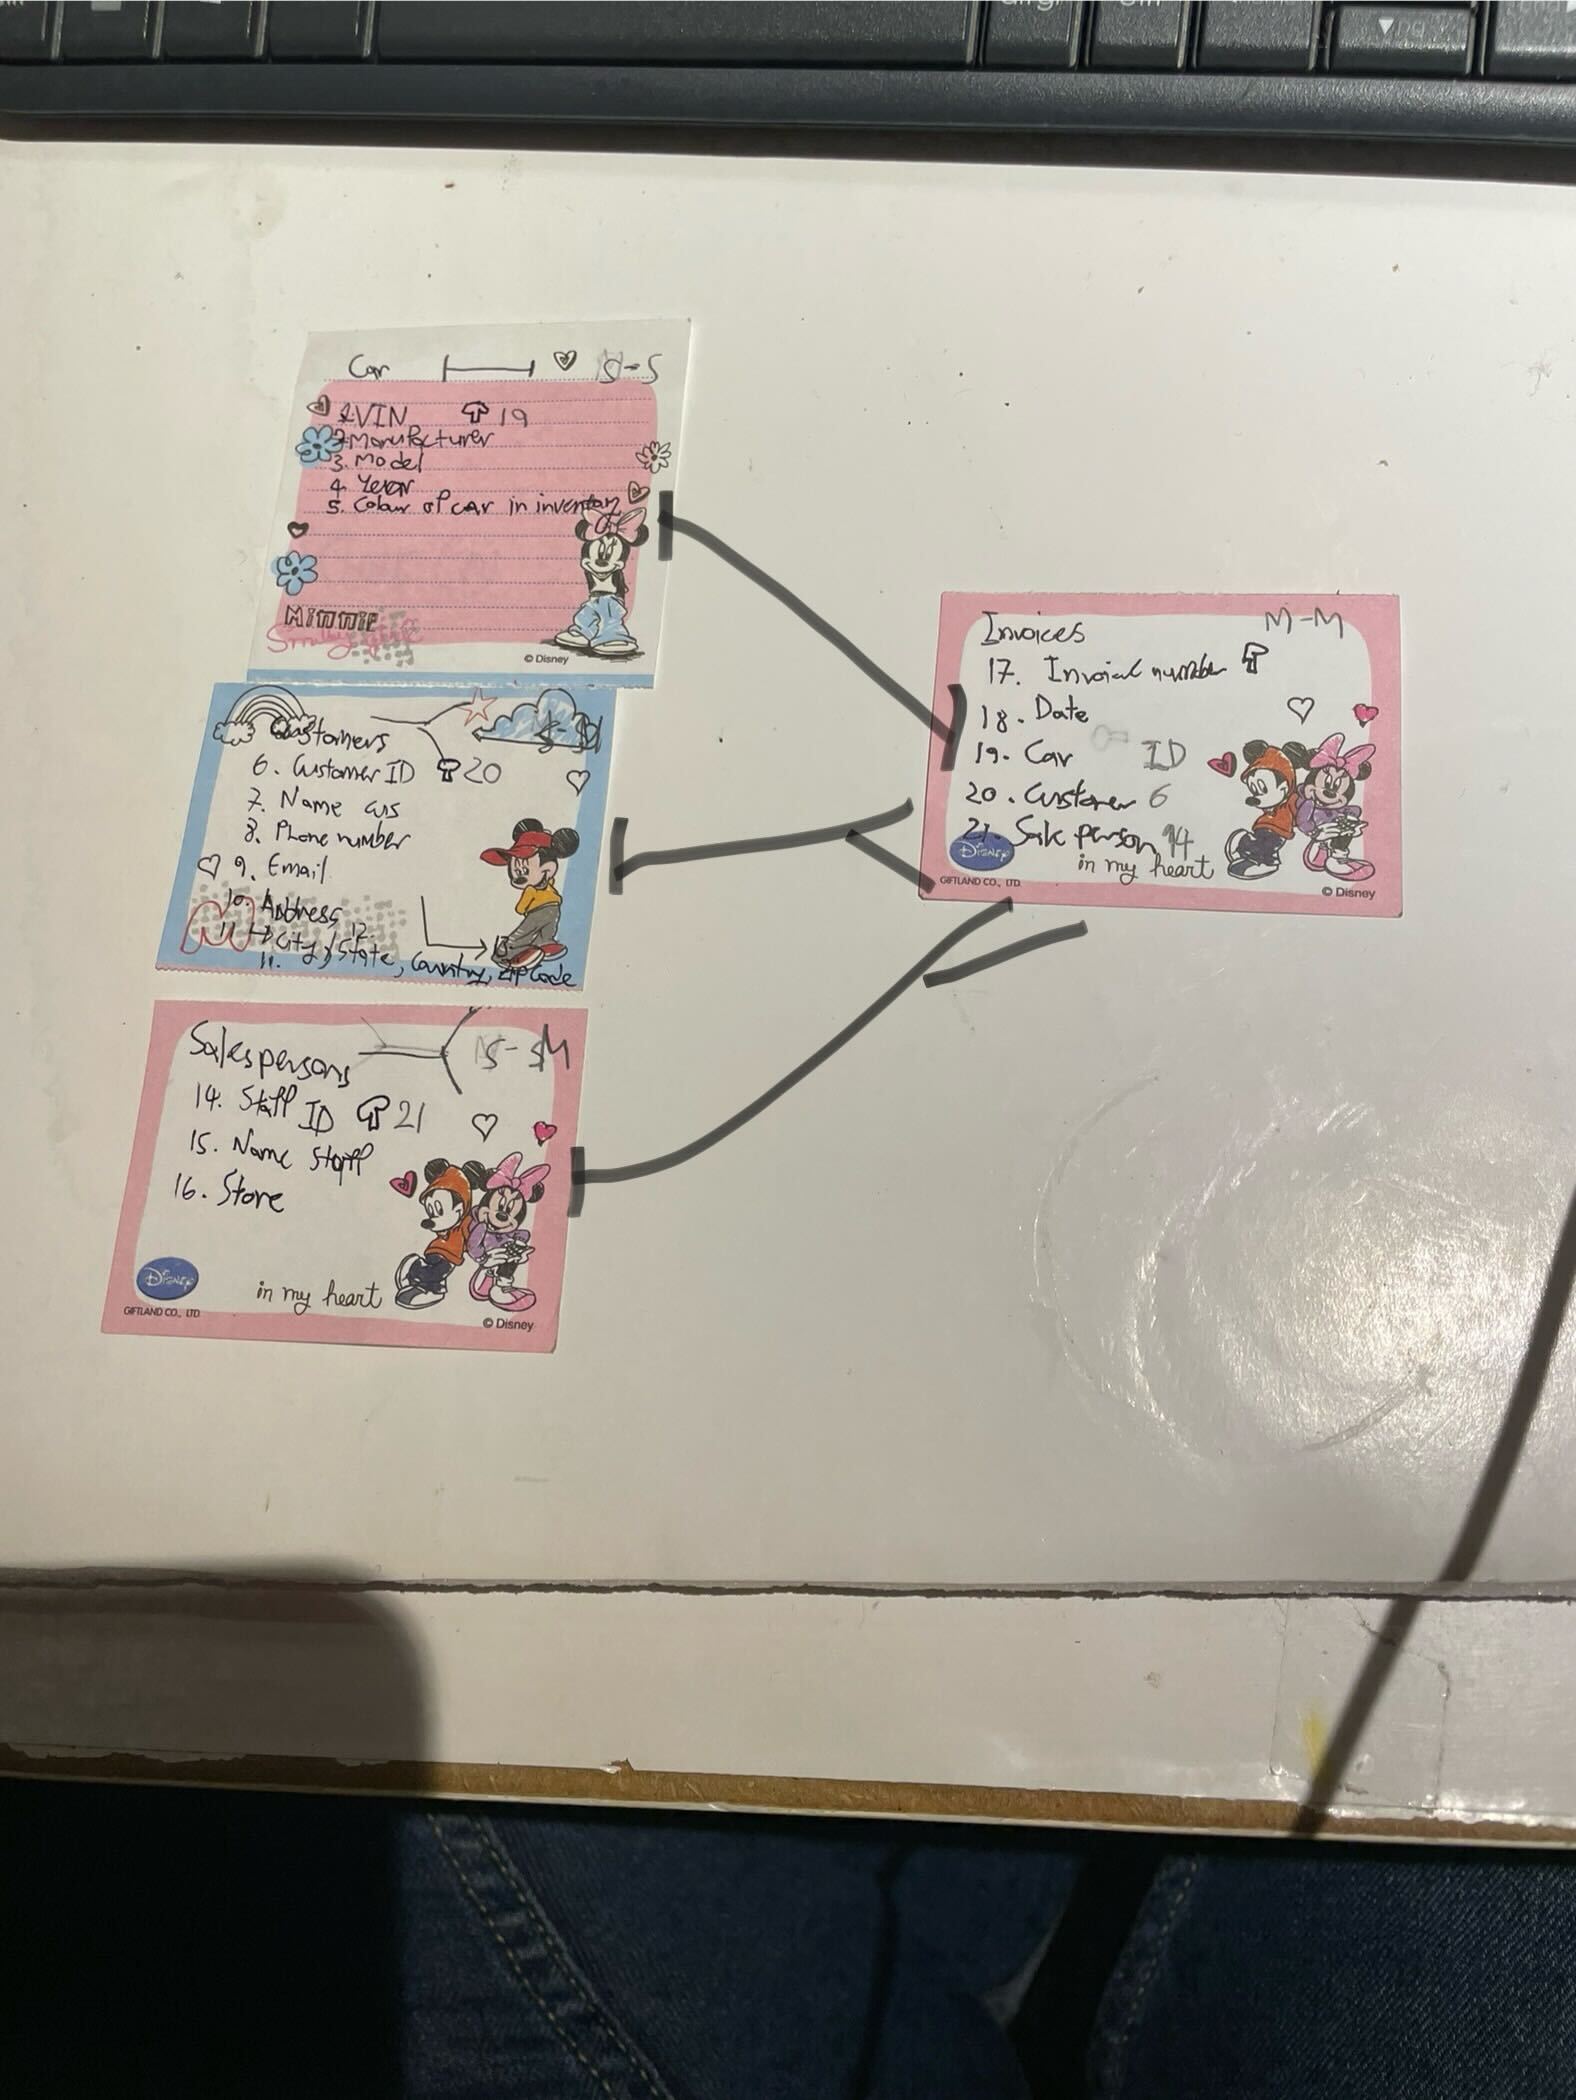 Car S-S
1.VIN 19
2.Manufacturer
3. Model
4. Year
5. Colour of car in inventory
Minnie
© Disney
Customers
6. Customer ID 20
7. Name cus
8. Phone number
9. Email
10. Address
11. → City, State, Country, Zip Code
12.
13.
11.
Salespersons S-M
14. Staff ID 21
15. Name Staff
16. Store
Disney
in my heart
GIFTLAND CO., LTD.
© Disney
Invoices M-M
17. Invoice number
18. Date
19. Car ID
20. Customer 6
21. Sale person 14
Disney
in my heart
GIFTLAND CO., LTD.
© Disney